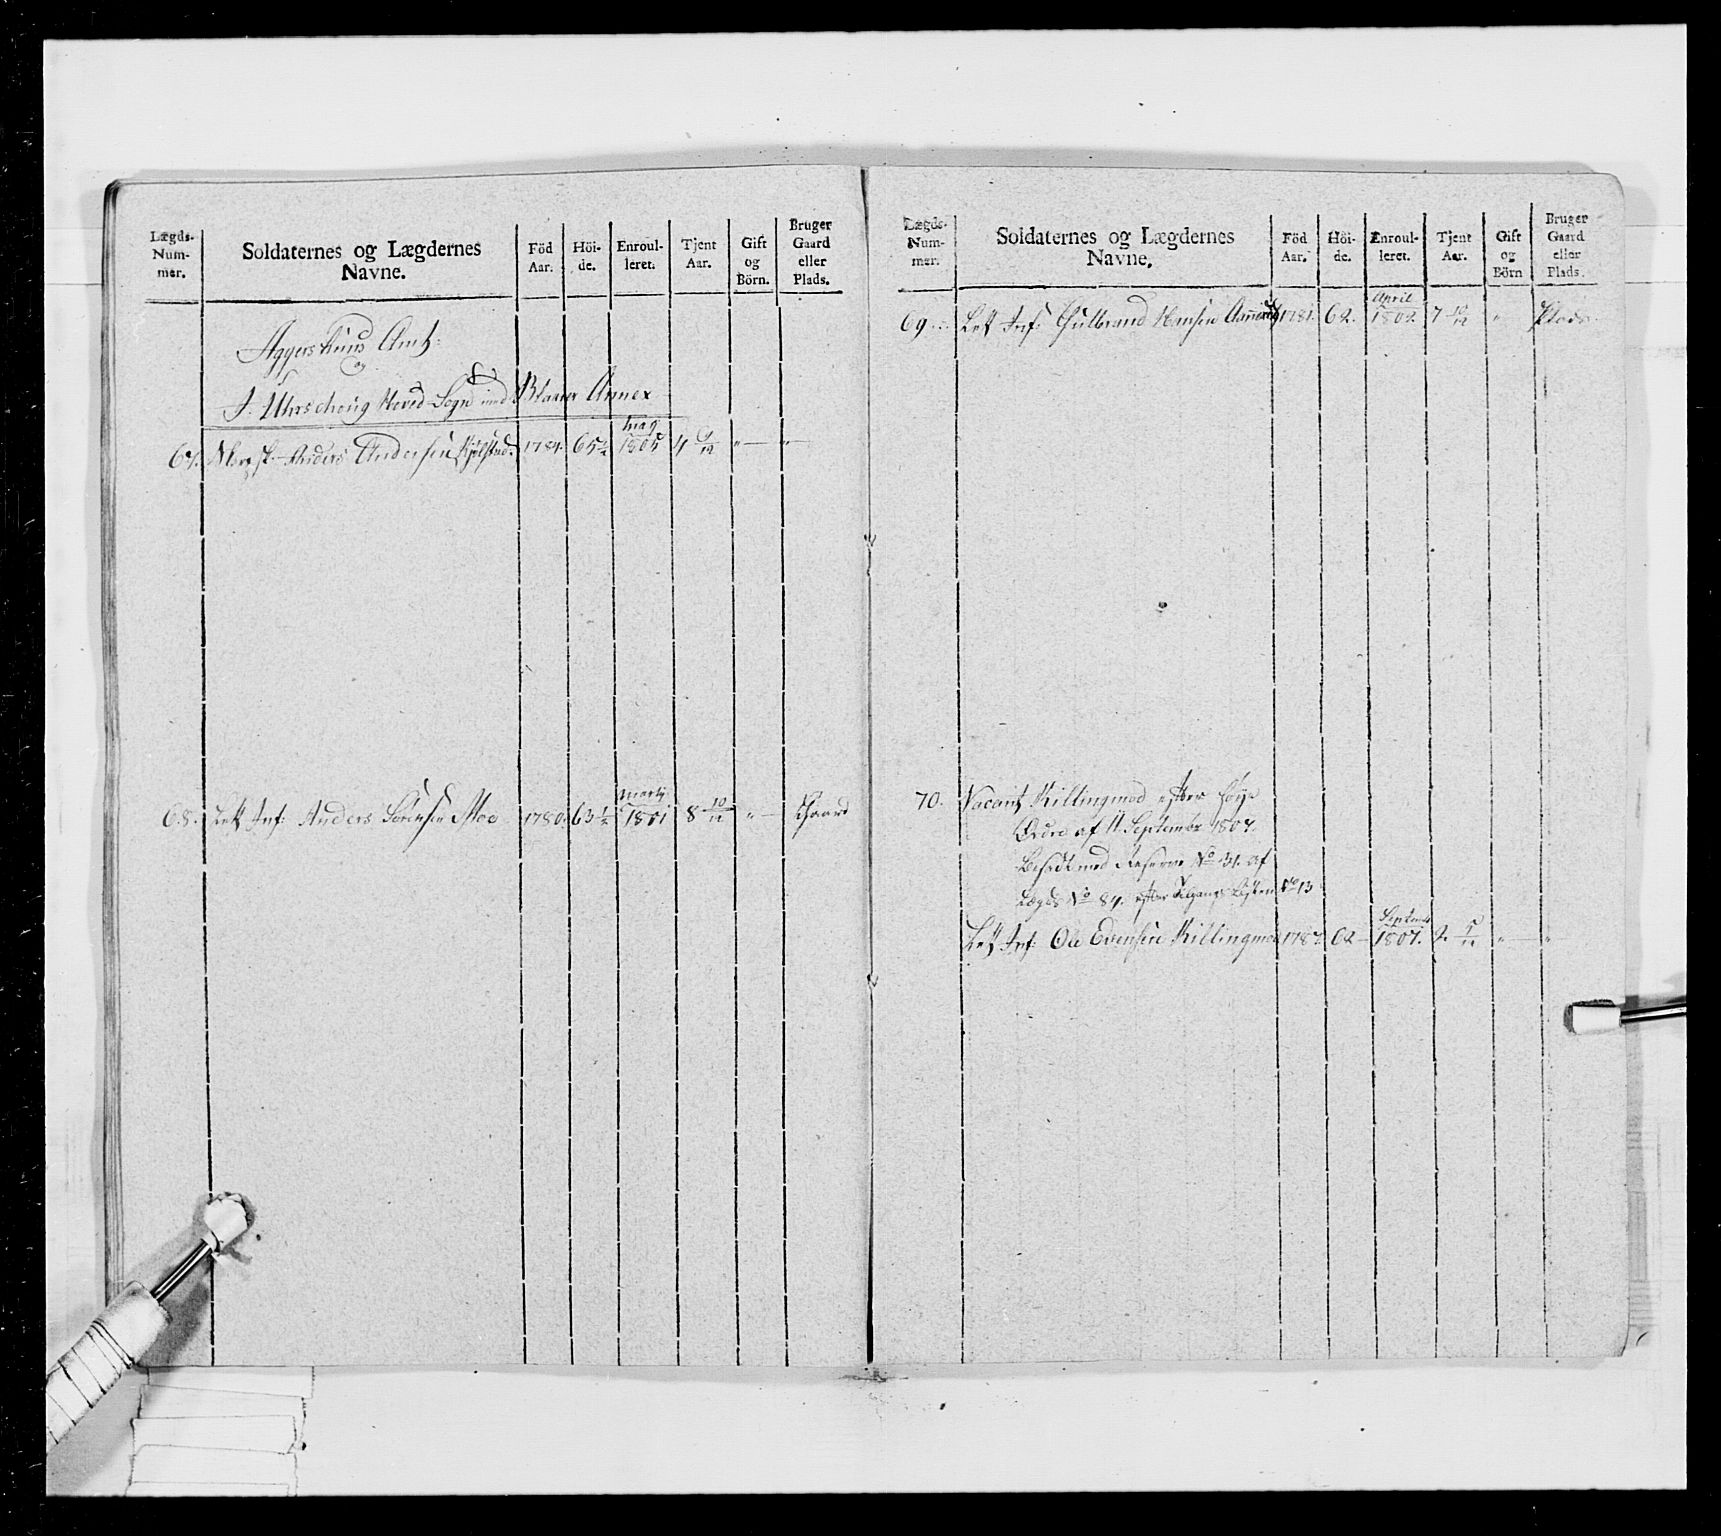 Lægds-Num-mer. Soldaternes og Lægdernes Navne. Föd Aar. Höi-de. Enroul-leret. Tjent Aar. Gift og Börn. Bruger Gaard eller Plads.
Aggershuus Amt.
Uhrschoug Hoved-Sogn med Blaker Annex
67. Anders Andersen 1784. 65 1/2 May 1805 4
68. Lett Inf: Anders Sörensen Moe 1780. 63 1/2 Marty 1801 8 10/12 " Gaard
Lægds-Num-mer. Soldaternes og Lægdernes Navne. Föd Aar. Höi-de. Enroul-leret. Tjent Aar. Gift og Börn Bruger Gaard eller Plads.
69. Lett Inf: Gulbrand Hansen 1781. 62. April 1802. 7 10/12 " Plads
70. Vacant Killingmoe efter höye
Ordre af 11 Septembr 1807.
besadt med Reserve No 31. af
Lægds No 84. efter Afgangs Listen No 13
Lett Inf: Ole Evensen Killingmoe 1787. 62 Septembr 1807. 2 5/12 " "